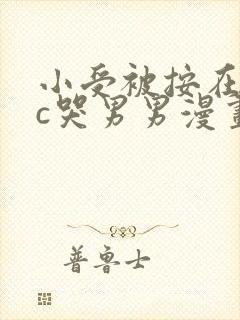 小受被按在
c哭男男漫畫
普鲁士